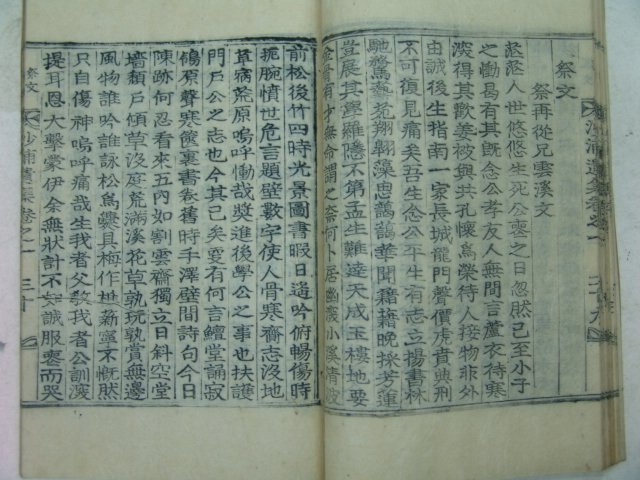 祭文
祭再從兄雲溪文
茫茫人世悠悠生死公喪之日忽然已至小子
之慟易有其旣念公孝友人無間言蘆衣待寒
湙得其歡姜被與共孔懷爲樂待人接物非外
由誠後生指南一家長城龍門聲價虎賁典刑
不可復見痛矣吾生念公平生有志揚書林
馳騖藝苑翱翔藻思鵲鵲華聞籍籍晩採芳蓮
豈展其學羅隱不第孟生難達天成玉樓地要
金骨有才無命謂之奈何卜居幽邃小溪清波
前松後竹四時光景圖書暇日遙吟俯暢傷時
扼腕憤世危言題壁數字使人骨寒齋志沒地
草宿荒原嗚呼慟哉奬進後學公之事也扶護
門戶公之志也今其已矣夏有何言鱣堂誦寂
鴒原聲寒篋裏書卷舊時手澤壁間詩句今日
陳跡何忍看來五內如割雲齋獨立日斜空堂
墻頹戶傾草沒庭荒滿溪花草孰玩孰賞無邊
風物誰吟誰詠松爲爨具梅作薪寧不慨然
只自傷神嗚呼痛哉生我者父敎我者公訓深
提耳恩大擊蒙伊余無狀計不知誠服喪而哭
祭文 沙浦遺集卷之一 三十
沙浦遺集卷之一 二十九